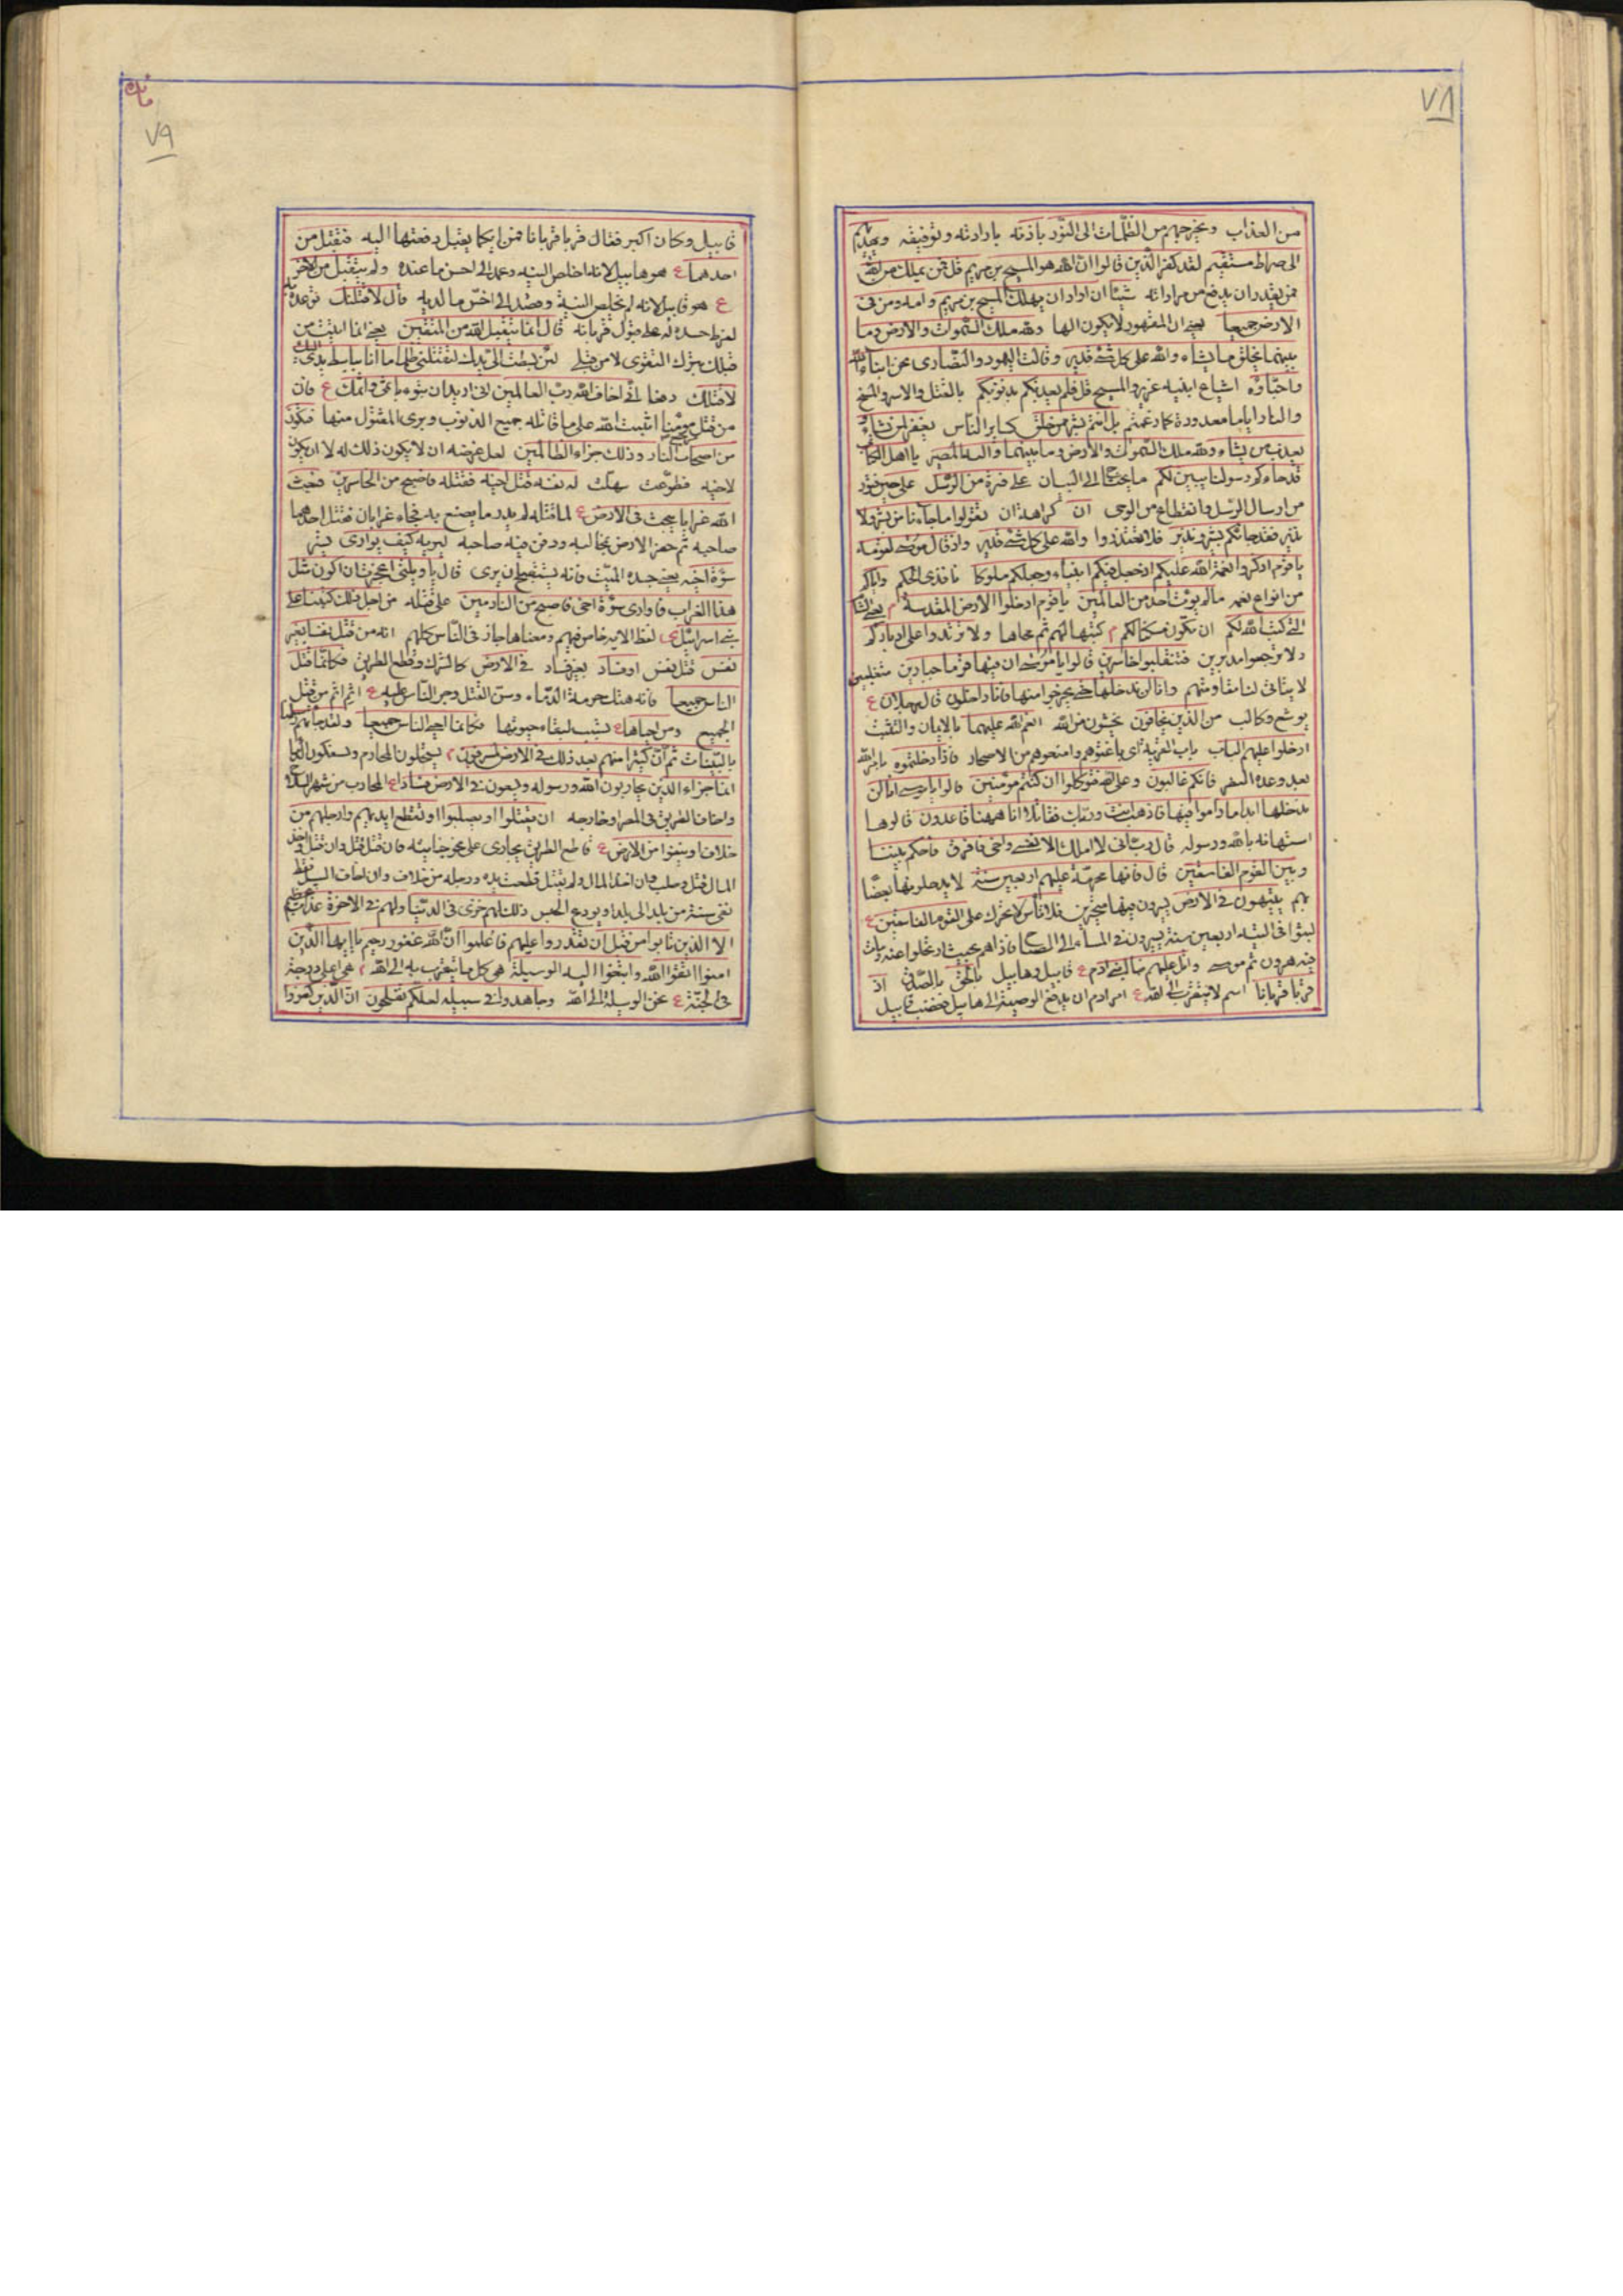 ٧٨
من العذاب ويخرجهم من الظلمات الى النور باذنه بارادته وتوفيقه ويهديهم
الى صراط مستقيم لقد كفر الذين قالوا ان الله هو المسيح بن مريم قل فمن يملك من الله
فمن يقدر ان يدفع من مراداته شيئا ان اراد ان يهلك المسيح بن مريم وامه ومن فى
الارض جميعا يعنى ان المقهور لا يكون الها ولله ملك السموات والارض وما
بينهما يخلق ما يشاء والله على كل شئ قدير وقالت اليهود والنصارى نحن ابناء الله
واحباؤه اشياع ابنيه عزير والمسيح قل فلم يعذبكم بذنوبكم بالقتل والاسر والمسخ
والنار اياما معدودة كما زعمتم بل انتم بشر ممن خلق كساير الناس يغفر لمن يشاء و
يعذب من يشاء ولله ملك السموات والارض وما بينهما واليه المصير يا اهل الكتاب
قد جاءكم رسولنا يبين لكم ما يحتاج الى البيان على فترة من الرسل على حين فتور
من ارسال الرسل وانقطاع من الوحى ان كراهة ان تقولوا ما جاءنا من بشير ولا
نذير فقد جائكم بشير ونذير فلا تعتذروا والله على كل شئ قدير واذ قال موسى لقومه
يا قوم اذكروا نعمة الله عليكم اذ جعل فيكم انبياء وجعلكم ملوكا نافذى الحكم واتاكم
من انواع نعمه ما لم يؤت احد من العالمين يا قوم ادخلوا الارض المقدسة م يعنى الشام
التى كتب الله لكم ان تكون مسكنا لكم م كتبها لهم ثم محاها ولا ترتدوا على ادباركم
ولا ترجعوا مدبرين فتنقلبوا خاسرين قالوا يا موسى ان فيها قوما جبارين متغلبين
لا يتاتى لنا مقاومتهم وانا لن ندخلها حتى يخرجوا منها فانا داخلون قال رجلان ع
يوشع وكالب من الذين يخافون يخشون من الله انعم الله عليهما بالايمان والتثبت
ادخلوا عليهم الباب باب القرية اى باغتوهم وامنعوهم من الاصحار فاذا دخلتموه
بعد وعده النصر فانكم غالبون وعلى الله فتوكلوا ان كنتم مؤمنين قالوا يا موسى انا لن
ندخلها ابدا ما داموا فيها فاذهب انت وربك فقاتلا انا ههنا قاعدون قالوها
استهانة بالله ورسوله قال رب انى لا املك الا نفسى واخى فافرق فاحكم بيننا
وبين القوم الفاسقين قال فانها محرمة عليهم اربعين سنة
يتيهون فى الارض يسيرون فيها متحيرين فلا تأس لا تحزن على القوم الفاسقين ع
لبثوا فى التيه اربعين سنة يسيرون فى المساء الى الصباح فاذا هم بحيث ارتحلوا عنه ومات
فيه هرون ثم موسى واتل عليهم نبأ ابنى ادم ع قابيل وهابيل بالحق بالصدق اذ
قربا قربانا اسم لا يتقرب الى الله ع امر ادم ان يدفع الوصية الى هابيل فغضب قابيل
٧٩
قابيل وكان اكبر فقال قربا قربانا فمن ايكما يقبل دفعتها اليه فتقبل من
احدهما ع هو هابيل لانه اخلص النية وعمد الى احسن ما عنده ولم يتقبل من الاخر
ع هو قابيل لانه لم يخلص النية وقصد الى اخس ما لديه قال لاقتلنك توعده
لفرط حسده له على قبول قربانه قال انما يتقبل الله من المتقين يعنى انما اتيت من
قبلك بترك التقوى لا من قبلى لئن بسطت الى يدك لتقتلنى ظلما ما انا بباسط يدى اليك
لاقتلك دفعا انى اخاف الله رب العالمين انى اريد ان تبوء باثمى واثمك ع فان
من قتل مؤمنا اثبت الله على قاتله جميع الذنوب وبرئ المقتول منها فتكون
من اصحاب النار وذلك جزاء الظالمين لعل غرضه ان لا يكون ذلك له لا ان يكون
لاخيه فطوعت سهلت له نفسه قتل اخيه فقتله فاصبح من الخاسرين فبعث
الله غرابا يبحث فى الارض ع لما قتله لم يدر ما يصنع به فجاء غرابان فقتل احدهما
صاحبه ثم حفر الارض بمخالبه ودفن فيه صاحبه ليريه كيف يوارى يستر
سوأة اخيه يعنى جسده الميت فانه يستقبح ان يرى قال يا ويلتى اعجزت ان اكون مثل
هذا الغراب فاوارى سوأة اخى فاصبح من النادمين على قتله من اجل ذلك كتبنا على
بنى اسرائيل ع لفظ الاية خاص فيهم ومعناها جار فى الناس كلهم انه من قتل نفسا بغير
نفس قتل نفس او فساد بغير فساد فى الارض كالشرك وقطع الطريق فكانما قتل
الناس جميعا فانه هتك حرمة الدماء وسن القتل وجر الناس عليه ع اثم اثم من قتل
الجميع ومن احياها ع تسبب لبقاء حيوتها فكانما احيى الناس جميعا ولقد جائتهم رسلنا
بالبينات ثم ان كثيرا منهم بعد ذلك فى الارض لمسرفون م يستحلون المحارم ويسفكون الدما
انما جزاء الذين يحاربون الله ورسوله ويسعون فى الارض فسادا ع المحارب من شهر السلاح
واخاف الطريق فى المصر او خارجه ان يقتلوا او يصلبوا او تقطع ايديهم وارجلهم من
خلاف او ينفوا من الارض ع قاطع الطريق يجازى على نحو جنايته فان قتل قتل وان قتل واخذ
المال قتل وصلب وان اخذ المال ولم يقتل قطعت يده ورجله من خلاف وان اخاف السبيل فقط
نفى سنة من بلد الى بلد او يودع الحبس ذلك لهم خزى فى الدنيا ولهم فى الاخرة عذاب عظيم
الا الذين تابوا من قبل ان تقدروا عليهم فاعلموا ان الله غفور رحيم يا ايها الذين
امنوا اتقوا الله وابتغوا اليه الوسيلة هى كل ما يتقرب به الى الله م هى اعلى درجة
فى الجنة ع نحن الوسيلة الى الله وجاهدوا فى سبيله لعلكم تفلحون ان الذين كفروا